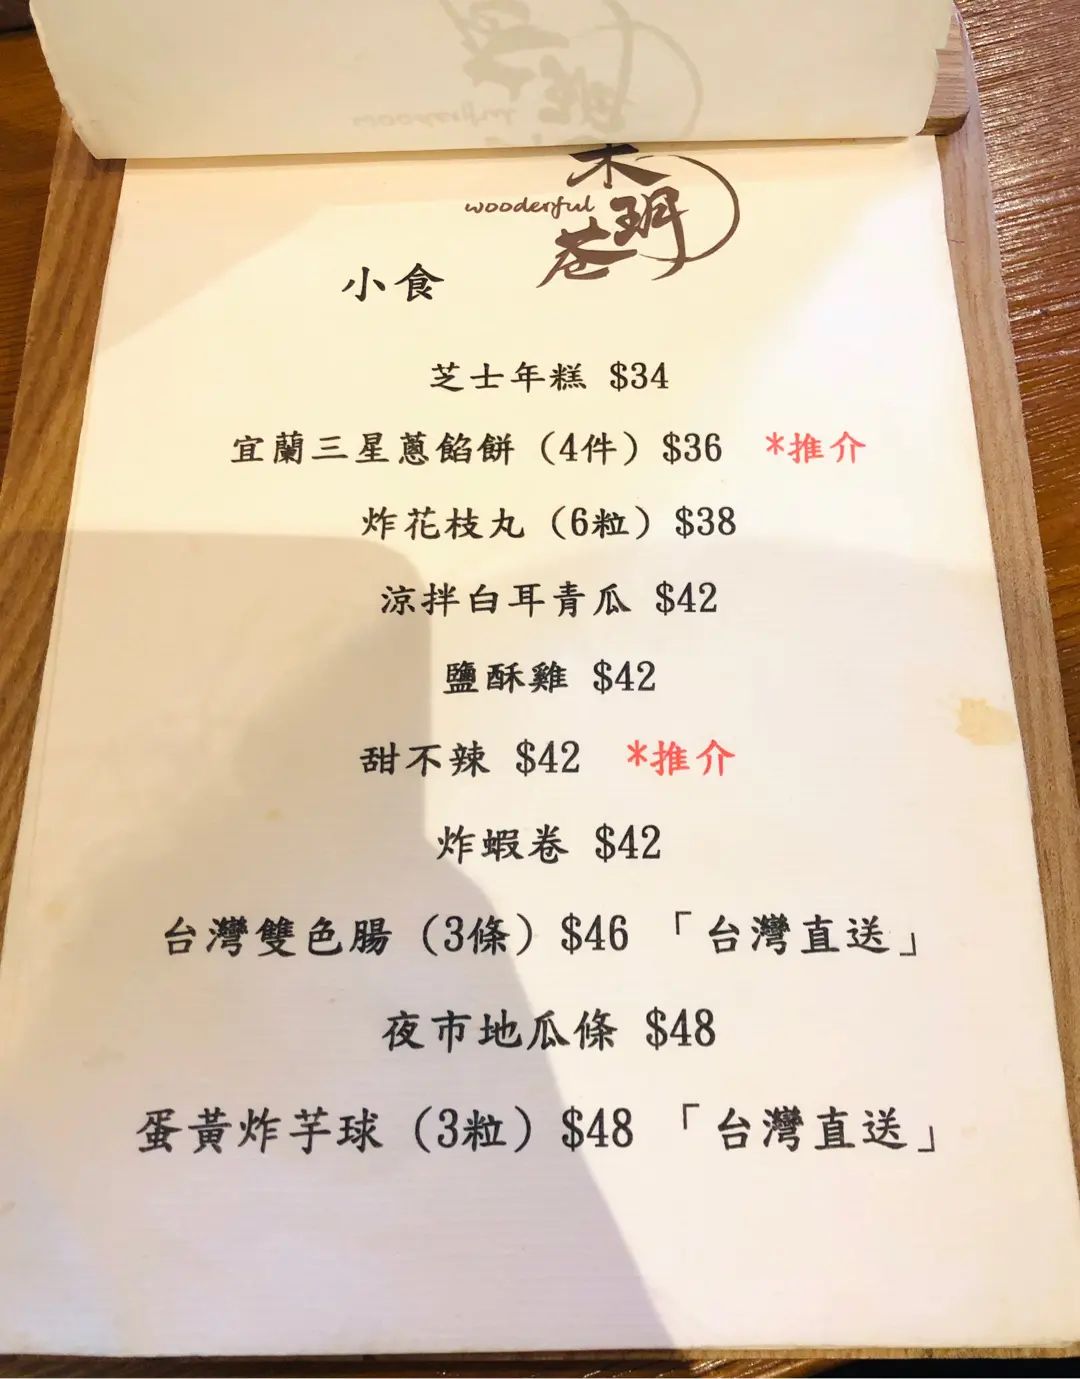 木
wooderful
玥
苍
小食
芝士年糕 $34
宜蘭三星蔥餡餅（4件）$36 *推介
炸花枝丸（6粒）$38
涼拌白耳青瓜 $42
鹽酥雞 $42
甜不辣 $42 *推介
炸蝦卷 $42
台灣雙色腸（3條）$46 「台灣直送」
夜市地瓜條 $48
蛋黃炸芋球（3粒）$48 「台灣直送」